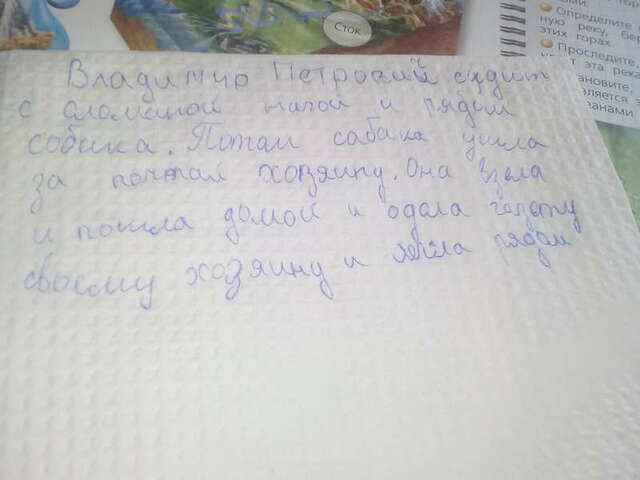 Сток
Определите
ную реку, бер
этих горах.
Проследите,
т эта река
Владимир Петровий сидит
с сломаной нагой и рядом
собака. Потом сабака ушла
за почтай хозяину. Она взела
и пошла домой и одала газету
своему хозяину и легла рядом